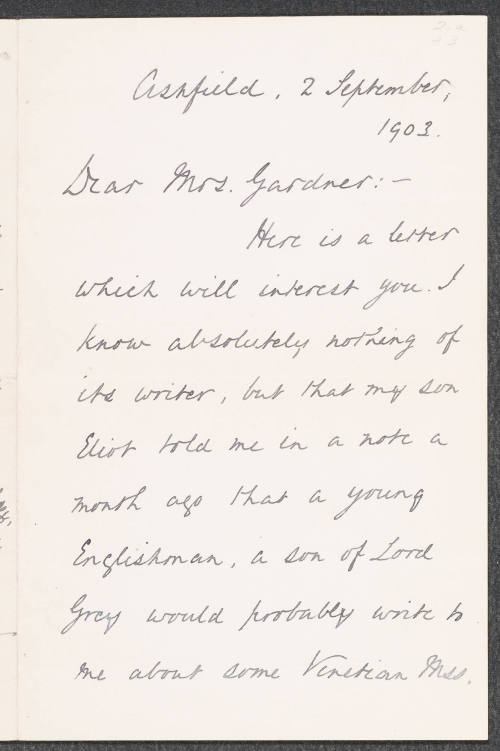 Ashfield, 2 September,
1903.
Dear Mrs. Gardner:—
Here is a letter
which will interest you. I
know absolutely nothing of
its writer, but that my son
Eliot told me in a note a
month ago that a young
Englishman, a son of Lord
Grey would probably write to
me about some Venetian Mss.